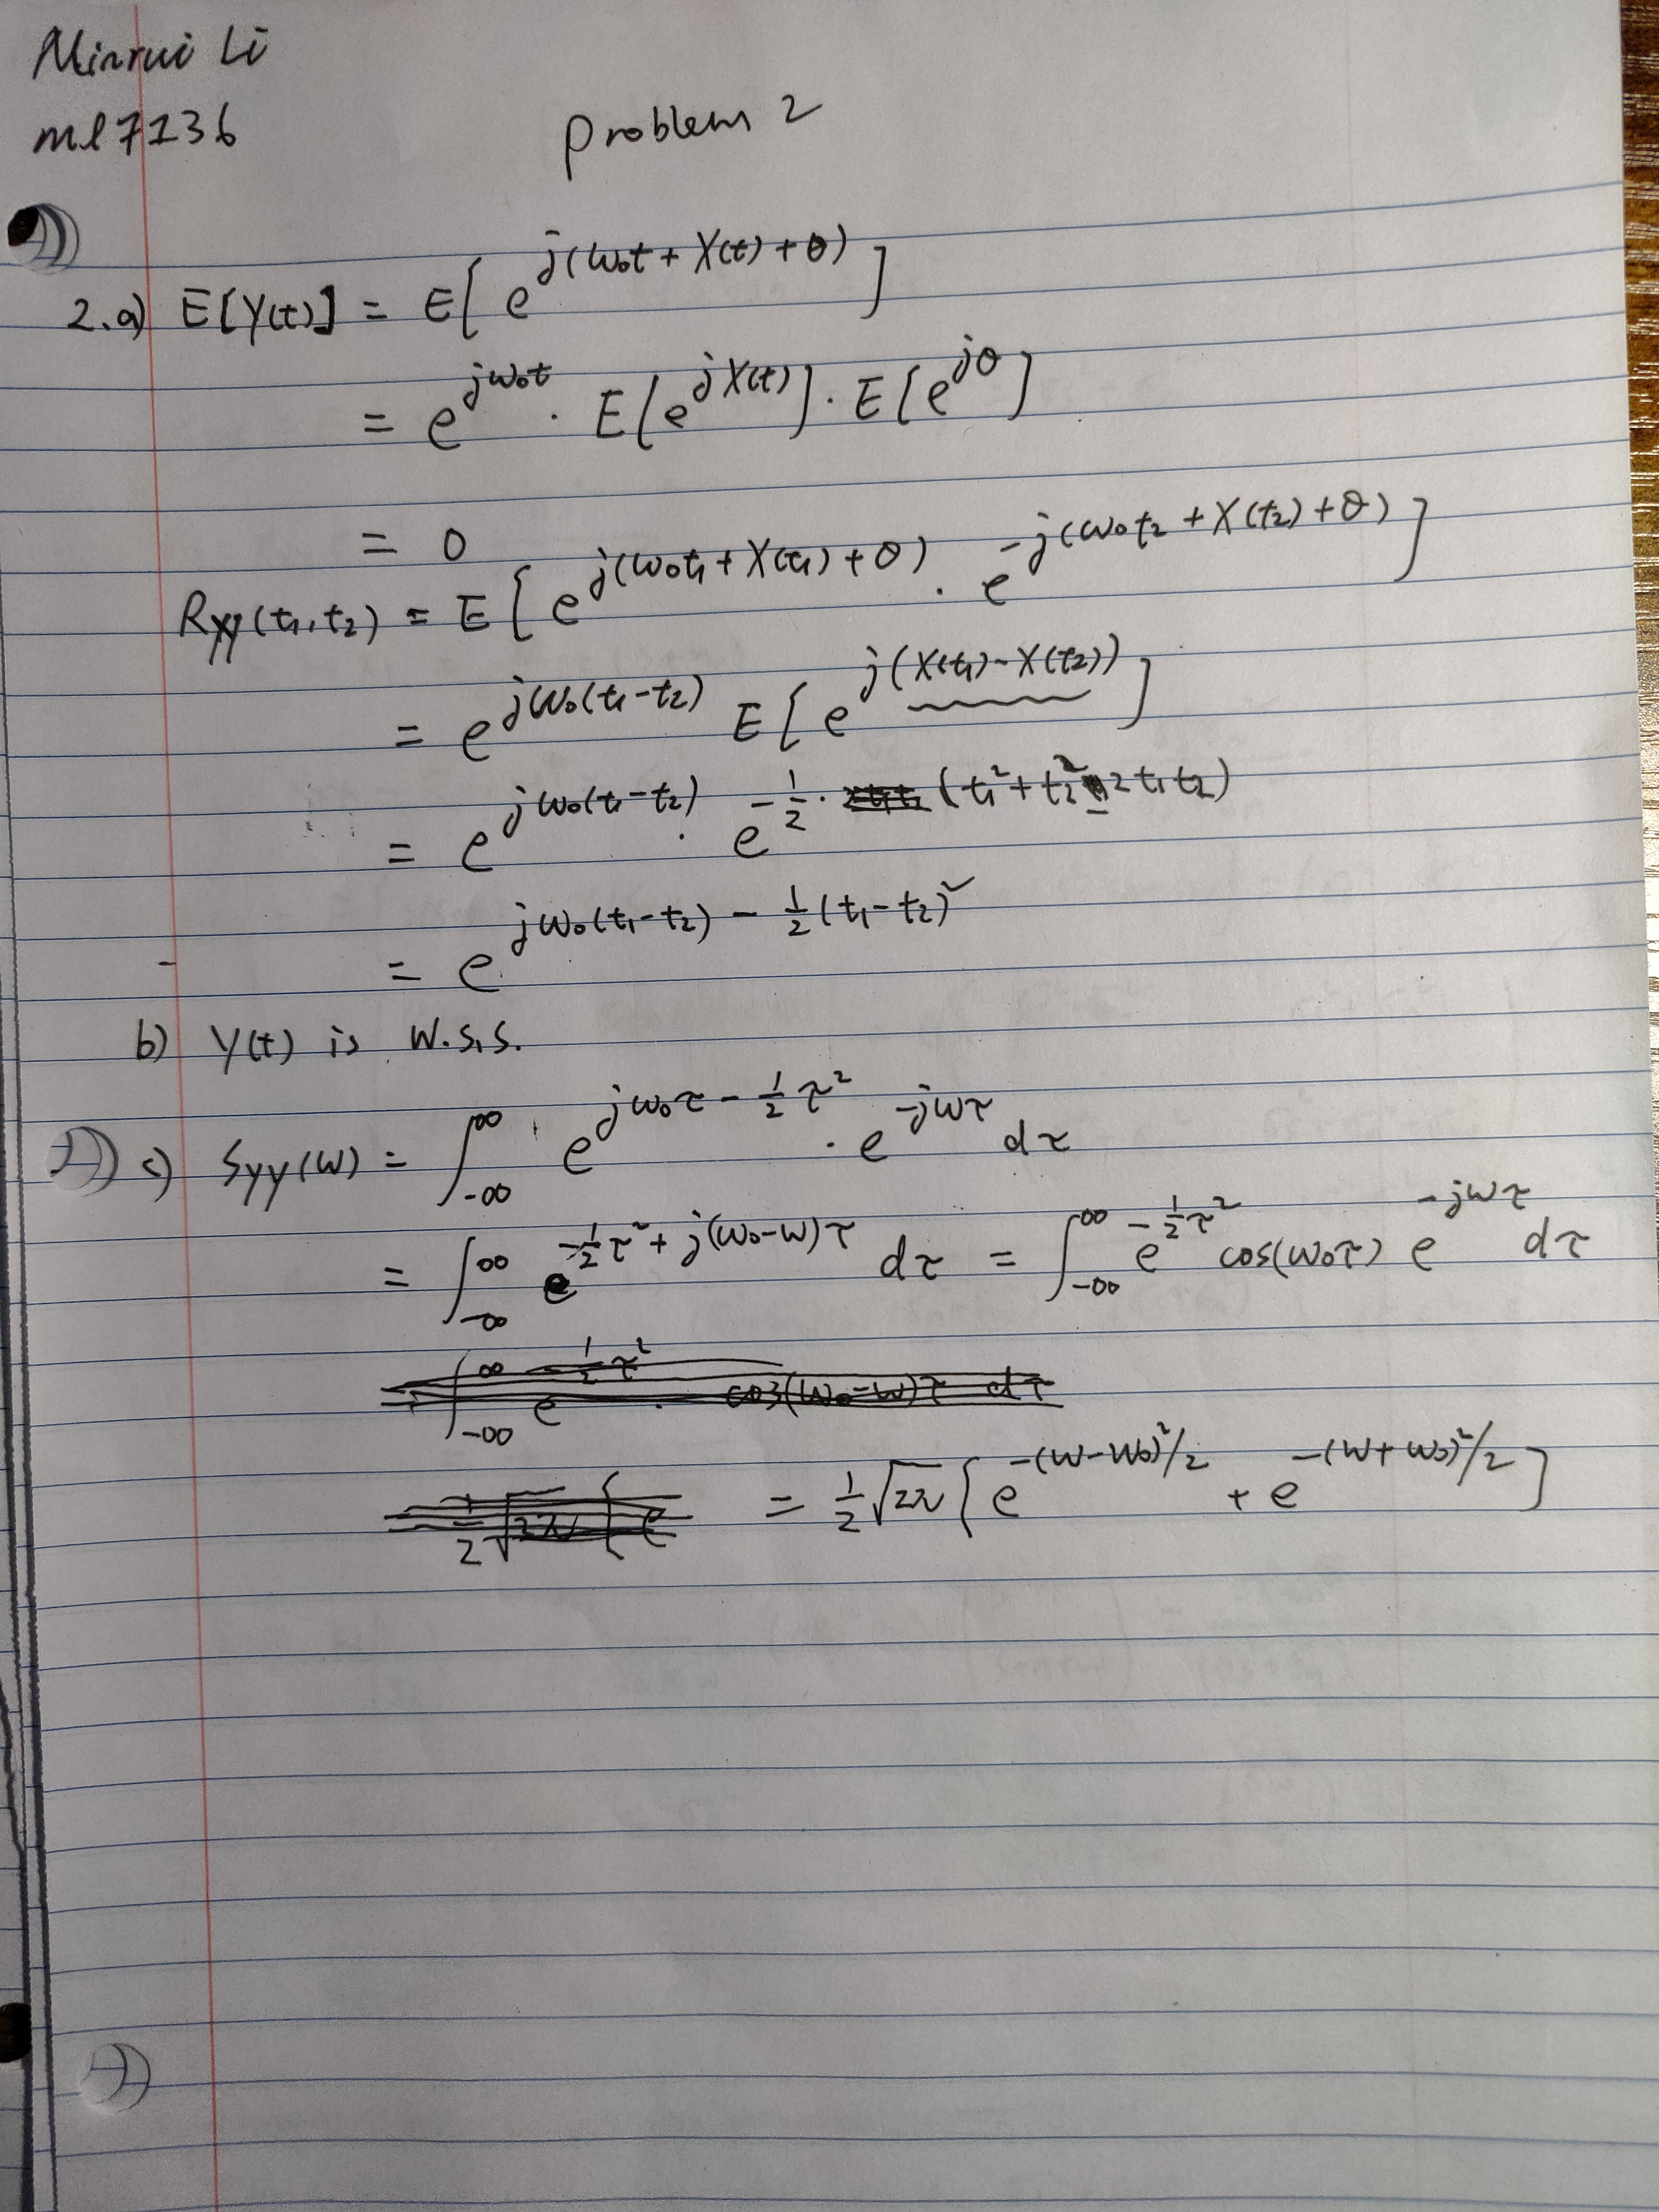 Minrui Li
ml7136
Problem 2
2.a) E[Y(t)] = E[e^{j(ω₀t + X(t) + θ)}]
= e^{jω₀t} · E[e^{jX(t)}] · E[e^{jθ}]
= 0
R_{YY}(t₁, t₂) = E[e^{j(ω₀t₁ + X(t₁) + θ)} · e^{-j(ω₀t₂ + X(t₂) + θ)}]
= e^{jω₀(t₁-t₂)} E[e^{j(X(t₁) - X(t₂))}]
= e^{jω₀(t₁-t₂)} · e^{-\frac{1}{2} · (t₁² + t₂² - 2t₁t₂)}
= e^{jω₀(t₁-t₂) - \frac{1}{2}(t₁-t₂)²}
b) Y(t) is W.S.S.
c) S_{YY}(ω) = ∫_{-∞}^{∞} e^{jω₀τ - \frac{1}{2}τ²} · e^{-jωτ} dτ
= ∫_{-∞}^{∞} e^{-\frac{1}{2}τ² + j(ω₀-ω)τ} dτ = ∫_{-∞}^{∞} e^{-\frac{1}{2}τ²} cos(ω₀τ) e^{-jωτ} dτ
= ∫_{-∞}^{∞} e^{-\frac{1}{2}τ²} · cos(ω₀-ω)τ dτ
\frac{1}{2}√2π [e = \frac{1}{2}√2π [e^{-(ω-ω₀)²/2} + e^{-(ω+ω₀)²/2}]